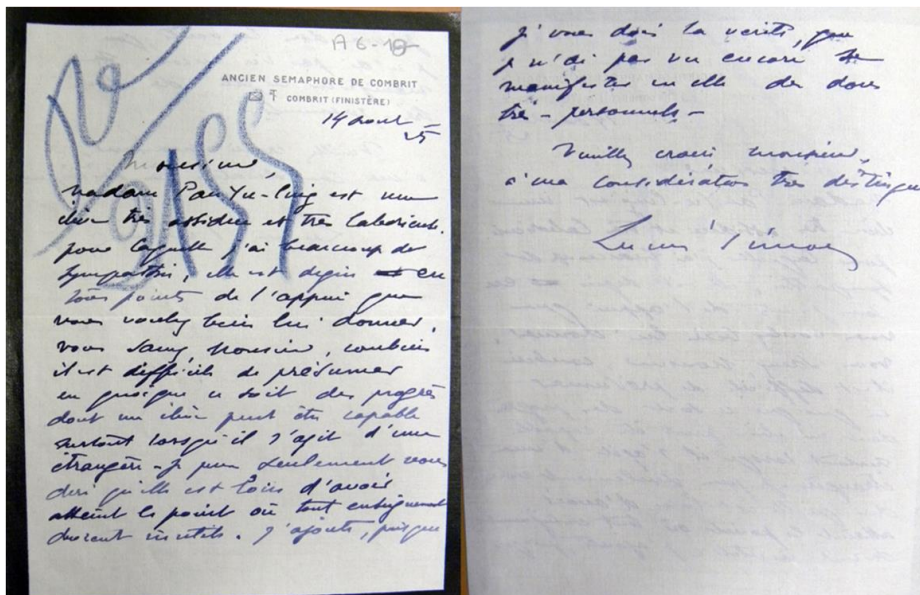 A6-10
ANCIEN SEMAPHORE DE COMBRIT
COMBRIT (FINISTÈRE)
14 aout
25
Monsieur,
Madame Pan Yu-Ling est une
élève très assidue et très laborieuse
pour laquelle j'ai beaucoup de
sympathie, elle est digne en
tous points de l'appui que
vous voulez bien lui donner.
vous savez, Monsieur, combien
il est difficile de présumer
en quoique ce soit des progrès
dont un élève peut être capable
surtout lorsqu'il s'agit d'une
étrangère - je puis seulement vous
dire qu'elle est loin d'avoir
atteint le point où tout enseignement
devient inutile. J'ajoute, puisque
je vous dois la vérité, que
je n'ai pas vu encore se
manifester en elle des dons
très-personnels -
Veuillez croire monsieur,
à ma considération très distinguée
Lucien Simon